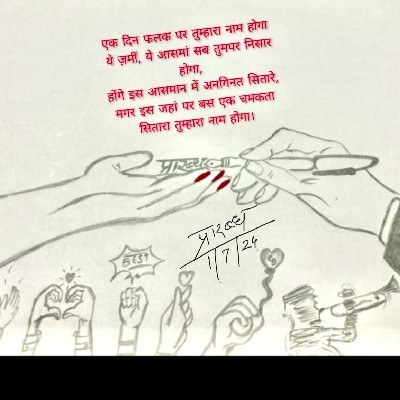 एक दिन फलक पर तुम्हारा नाम होगा
ये ज़मीं, ये आसमां सब तुमपर निसार
होगा,
होंगे इस आसमान में अनगिनत सितारे,
मगर इस जहां पर बस एक चमकता
सितारा तुम्हारा नाम होगा।
प्रारब्ध
प्रारब्ध
1/7/24
BEST